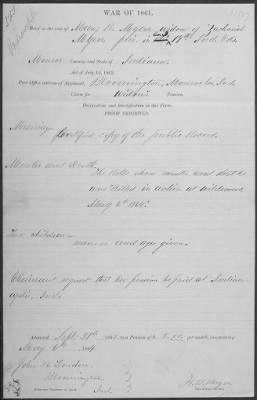 WAR OF 1861.
Brief in the case of Mary M. Myers widow of Zachariah
Myers priv. in 19th Ind. Vols
Monroe County, and State of Indiana
Act of July 14, 1862.
Post Office address of Applicant, Bloomington, Monroe Co. Ind
Claim for Widow's Pension.
Declaration and Identification in due Form.
PROOF EXHIBITED.
Marriage
Certified copy of the public Record.
Muster and Death.
The Rolls show muster and death
was killed in action at Wilderness
May 6th 1864.
children
names and age given.
Claimant request that her pension be paid at Indian-
apolis, Ind.
Admitted Sept. 1864, to a Pension of $ per month, commencing
May 6th 1864.
Bloomington
Ind